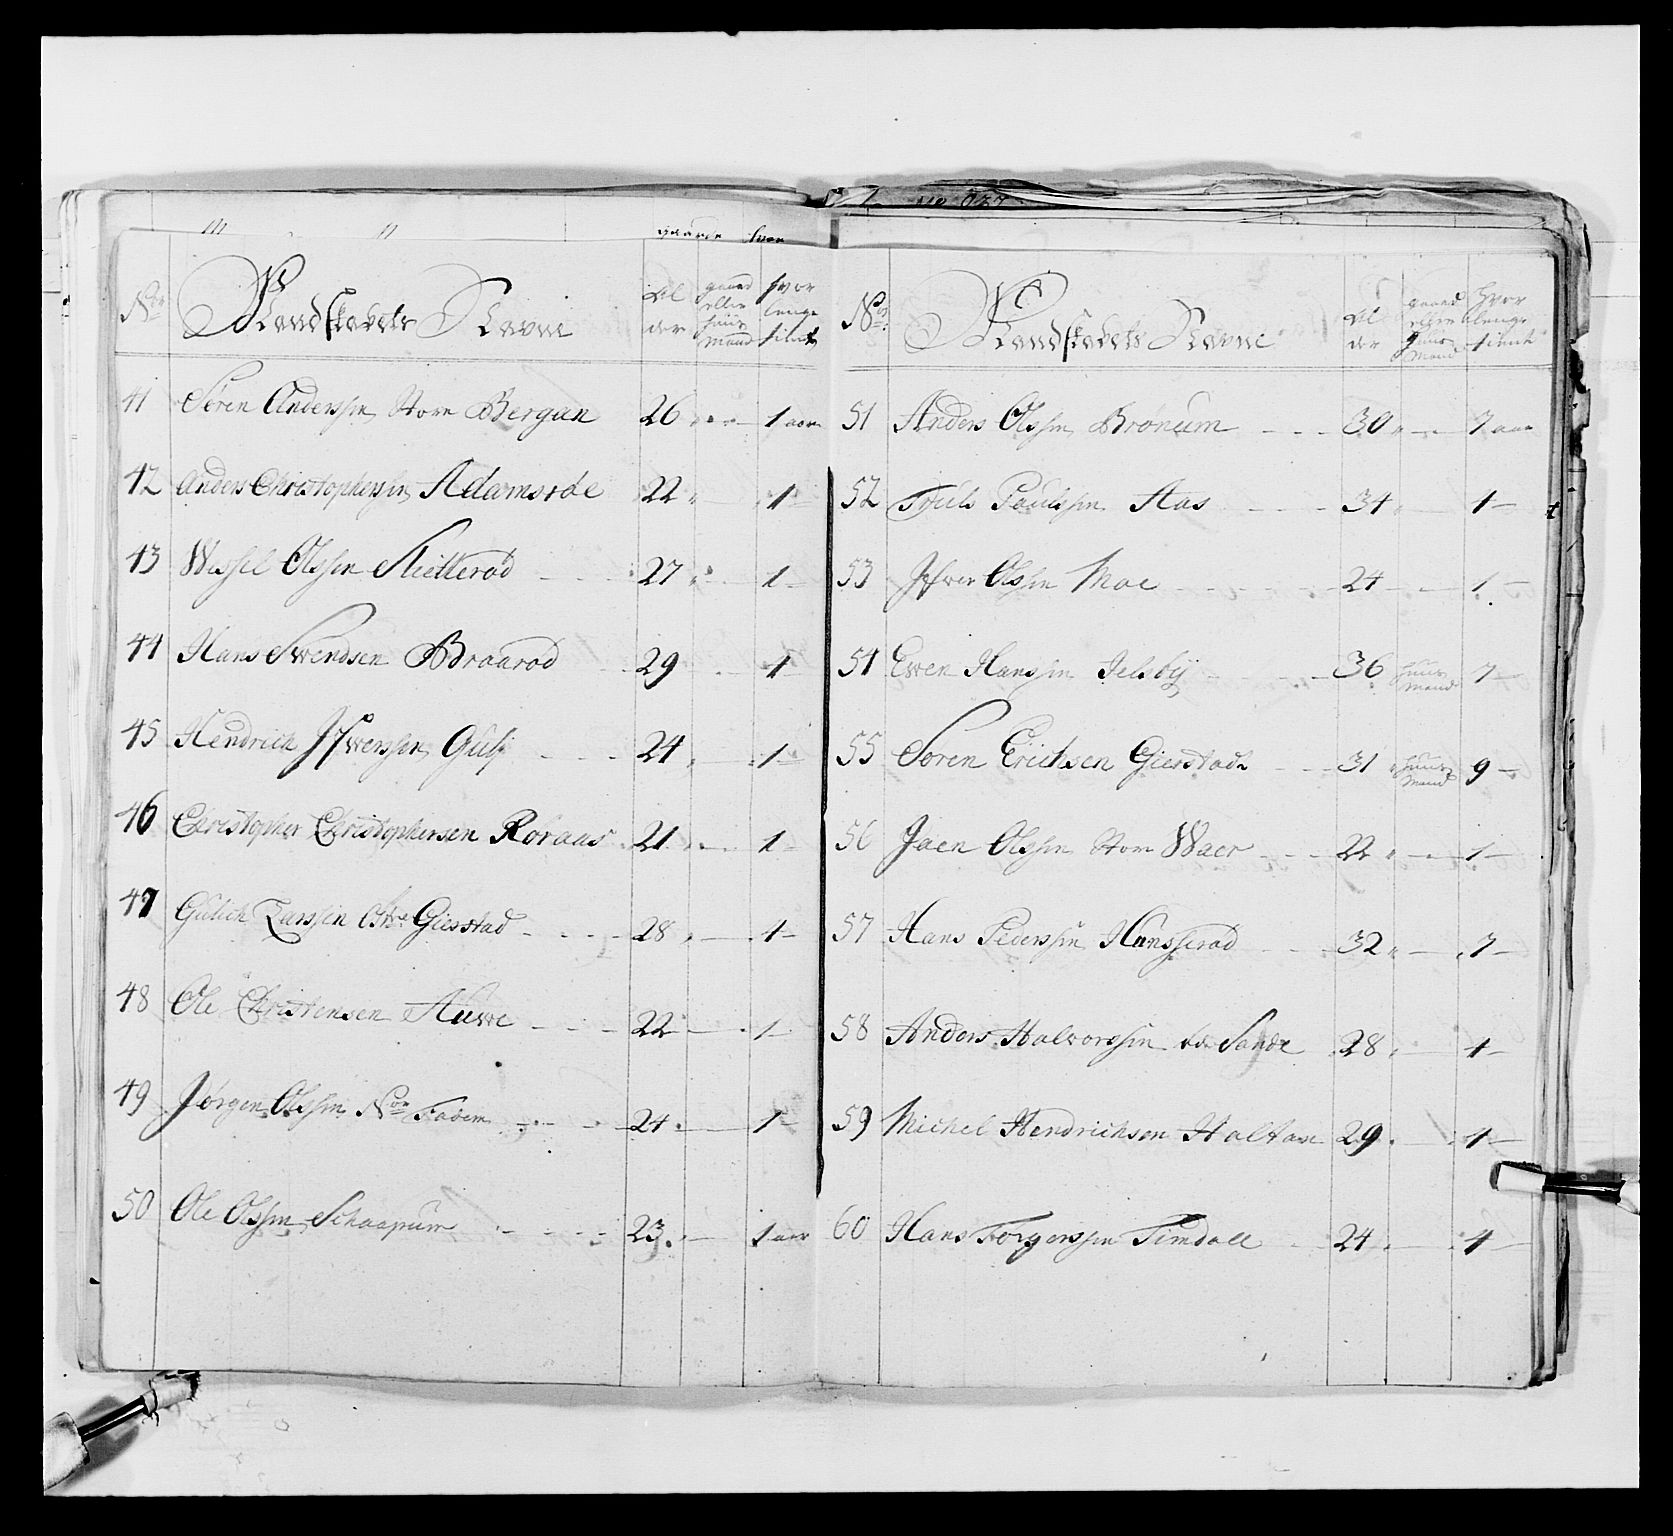 No Mandskabets Navne Al der gaard eller huus mand hvor lenge tient
41 Søren Anderssen Store Bergan 26 1 aar
42 Anders Christopherssen Adamsrøe 22 1
43 Wessel Olssen Sletterød 27 1
44 Hans Swendsen Braarød 29 1
45 Hendrich Ifwerssen Gulj 24 1
46 Christopher Christophersen Roraas 21 1
47 Gulich Larssen Østre Gierstad 28 1
48 Ole Christensen Auwe 22 1
49 Jørgen Olssen Nor Fadem 24 1
50 Ole Olssen Schaapum 23 1 aar
No Mandskabets Navne Al der gaard eller huus mand hvor lenge tient
51 Anders Olssen Brønum 30 7 aar
52 Truls Paulssen Aas 34 1
53 Ifwer Olssen Moe 24 1
54 Ewen Hanssen Jelsbÿ 36 huus mand 7
55 Søren Erichsen Gierstad 31 huus mand 9
56 Jaen Olssen Store Waer 22 1
57 Hans Pederssen Hunsserød 32 7
58 Anders Halvorssen Sande 28 1
59 Michel Hendrichsen Haltan 29 1
60 Hans Torgerssen Timdall 24 1